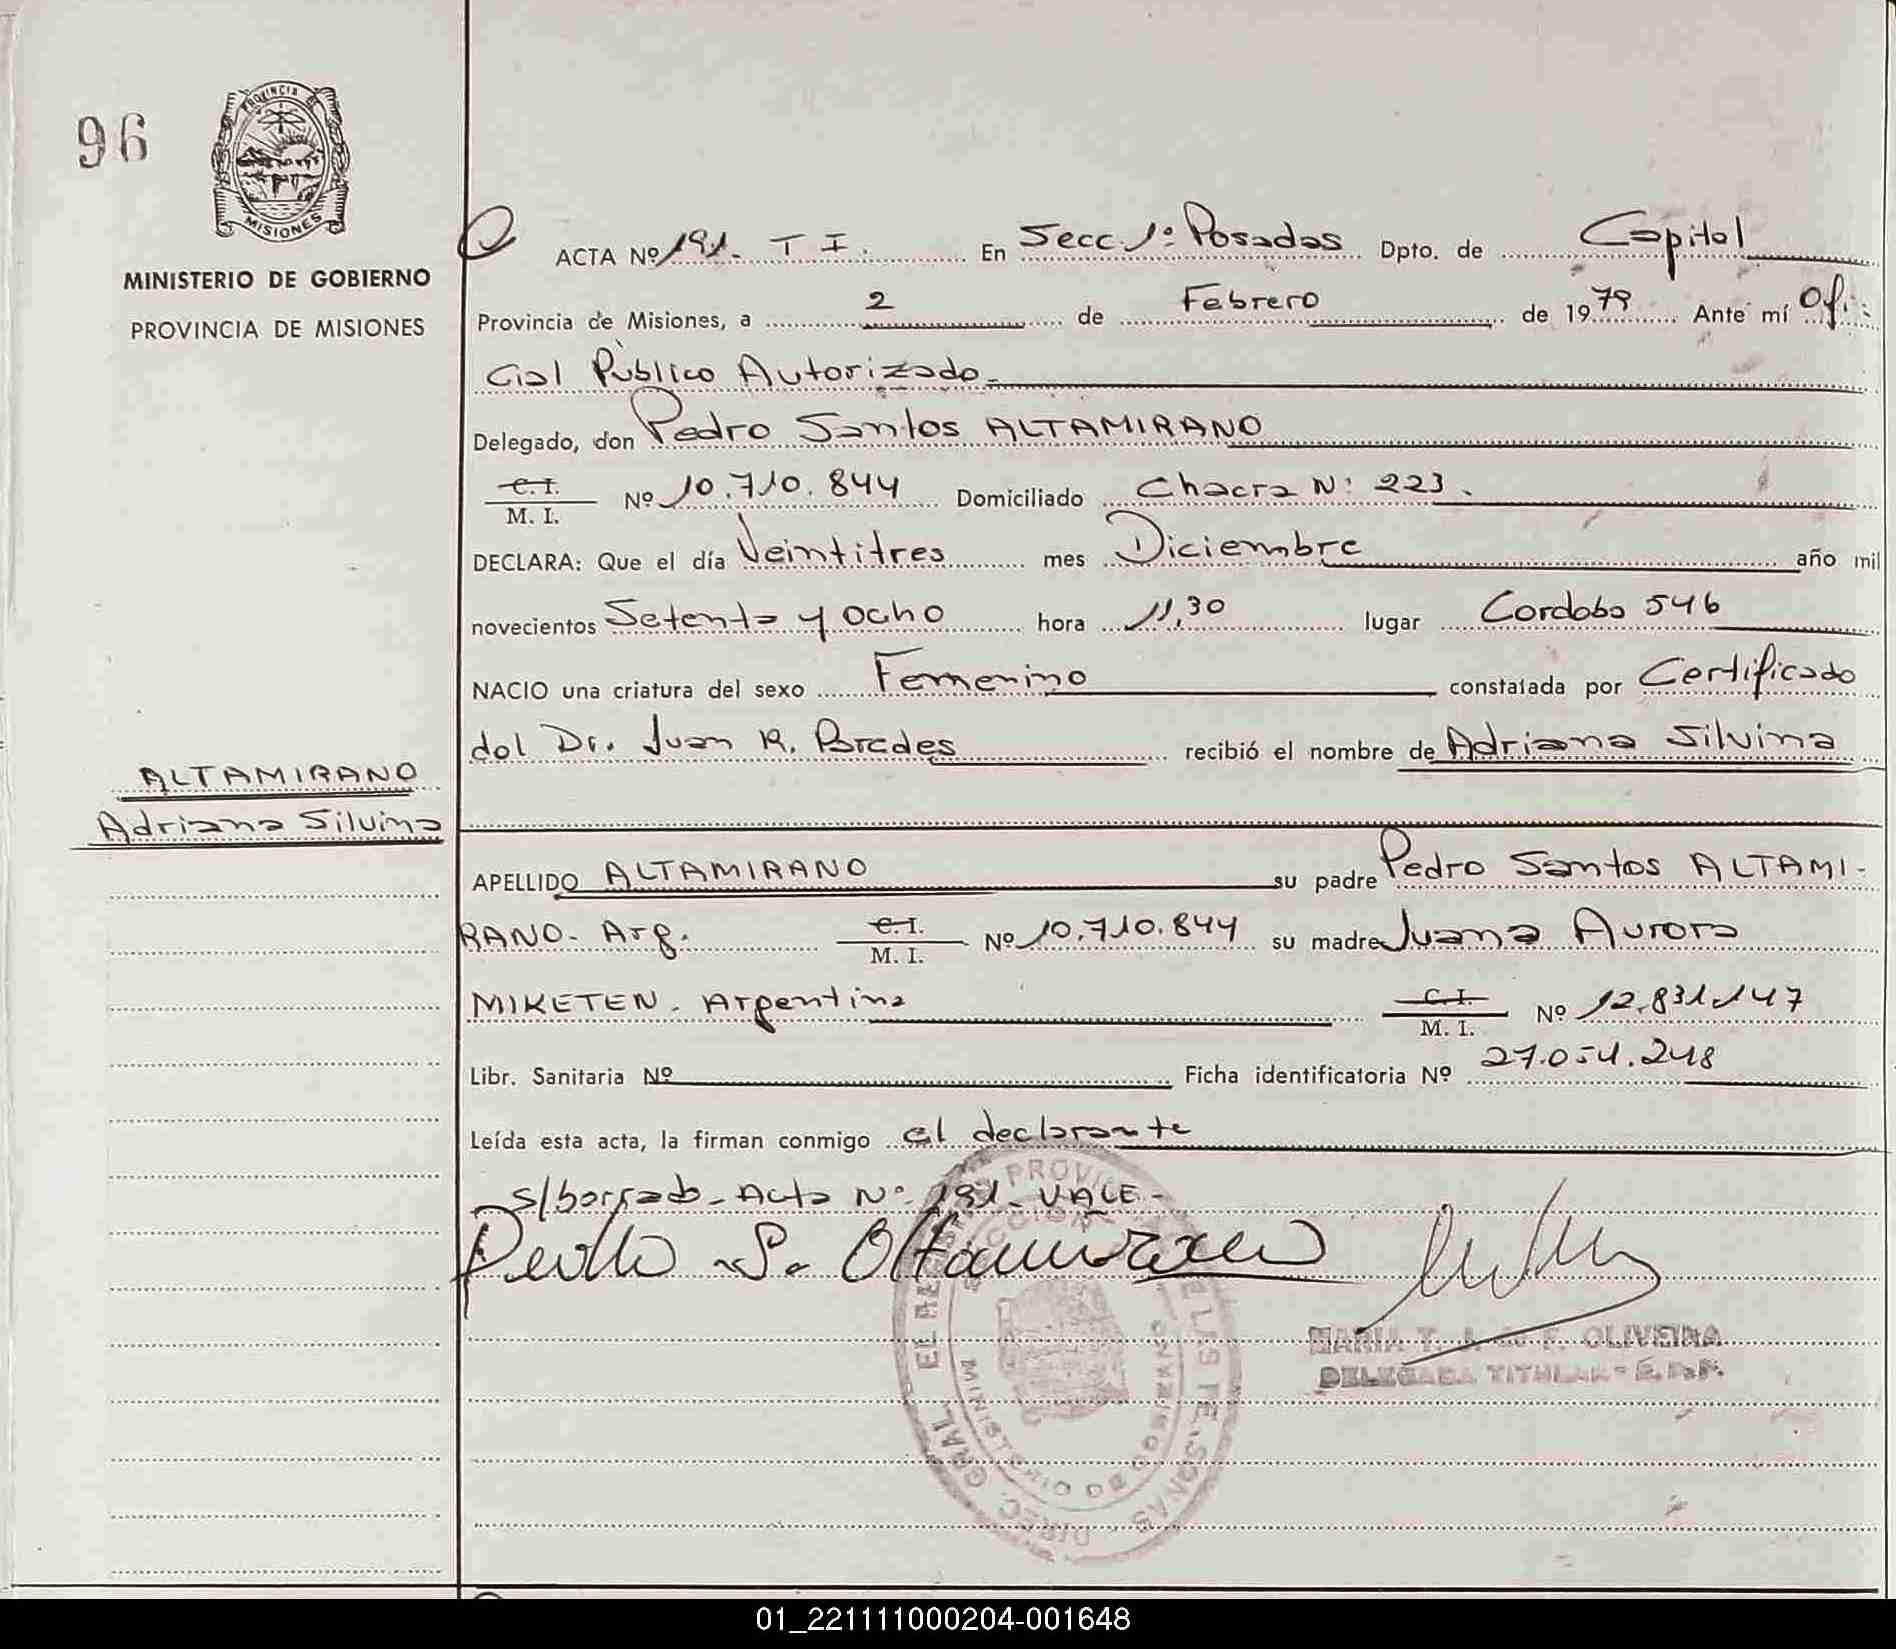 96
PROVINCIA DE
MISIONES
MINISTERIO DE GOBIERNO
PROVINCIA DE MISIONES
ACTA Nº 191. T I. En Secc. 1ª Posadas Dpto. de Capital
Provincia de Misiones, a 2 de Febrero de 1979 Ante mí Ofi-
cial Público Autorizado-
Delegado, don Pedro Santos ALTAMIRANO
C.I.
M. I. Nº 10.710.844 Domiciliado Chacra Nº 223.
DECLARA: Que el día Veintitres mes Diciembre año mil
novecientos Setenta y Ocho hora 11,30 lugar Cordoba 546
NACIO una criatura del sexo Femenino constatada por Certificado
del Dr. Juan R. Paredes recibió el nombre de Adriana Silvina
ALTAMIRANO
Adriana Silvina
APELLIDO ALTAMIRANO su padre Pedro Santos ALTAMI-
RANO- Arg. C.I.
M. I. Nº 10.710.844 su madre Juana Aurora
MIKETEN. Argentina C.I.
M. I. Nº 12.831.147
Libr. Sanitaria Nº Ficha identificatoria Nº 27.054.248
Leída esta acta, la firman conmigo el declarante
s/borrado- Acta Nº 191- VALE-
Pedro S. Altamirano
MARIA T. OLIVEIRA
DELEGADA TITULAR
DIREC. GRAL. PERSONAS
MINISTERIO DE GOBIERNO
01_221111000204-001648